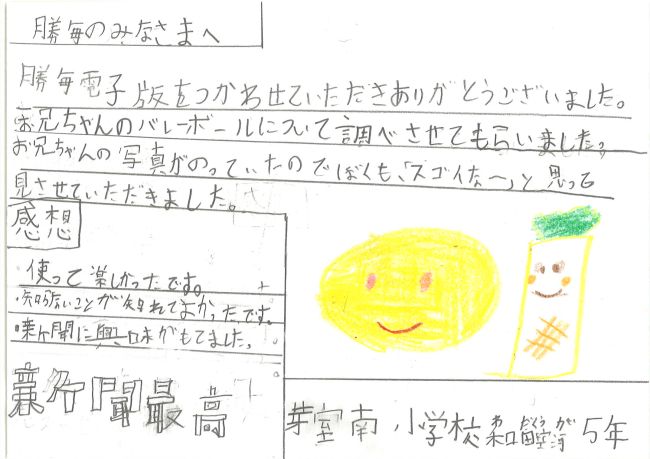 勝毎のみなさまへ
勝毎電子版をつかわせていただきありがとうございました。
お兄ちゃんのバレーボールについて調べさせてもらいました。
お兄ちゃんの写真がのっていたのでぼくも、「スゴイな〜」と思って
見させていただきました。
感想
使って楽しかったです。
・知らないことが知れてよかったです。
・新聞に興味がもてました。
新聞最高
芽室南小学校 5年